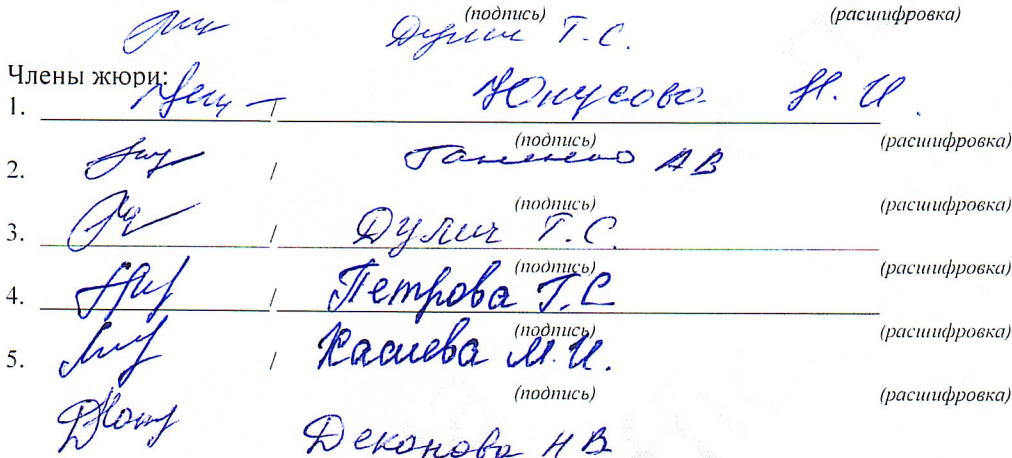 (подпись) (расшифровка)
Дулич Т.С.
Члены жюри:
1. / Юнусова Н. И.
(подпись) (расшифровка)
2. / Ганненко АВ
(подпись) (расшифровка)
3. / Дулич Т.С.
(подпись) (расшифровка)
4. / Петрова Т.С
(подпись) (расшифровка)
5. / М.И.
(подпись) (расшифровка)
Деконова НВ